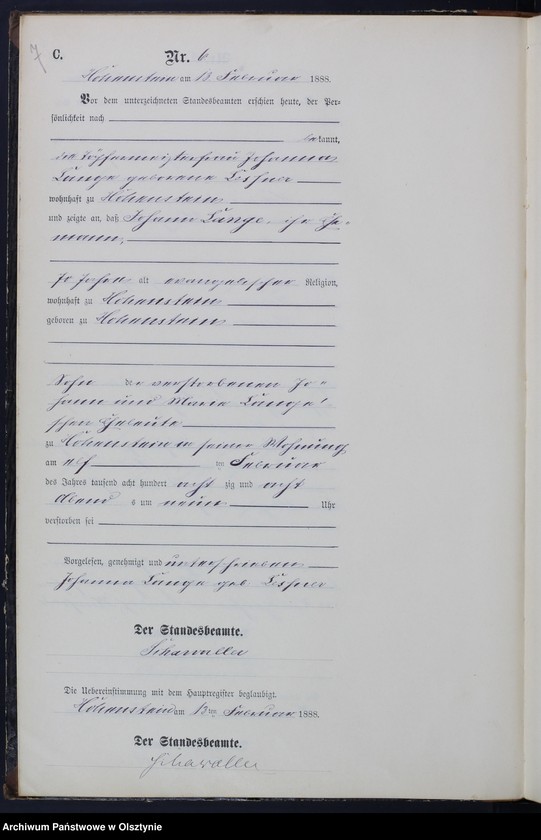 7
C.
Nr. 6
Hohenstein am 13 Februar 1888.
Vor dem unterzeichneten Standesbeamten erschien heute, der Per-
sönlichkeit nach
bekannt,
die Töpfermeisterfrau Johanna
Lange geborene
wohnhaft zu Hohenstein
und zeigte an, daß Johann Lange, ihr Ehe-
mann,
70 Jahre alt evangelischer Religion,
wohnhaft zu Hohenstein
geboren zu Hohenstein
Sohn der verstorbenen Jo-
hann und Maria Lange'
schen Eheleute
zu Hohenstein in seiner Wohnung
am elf ten Februar
des Jahres tausend acht hundert acht zig und acht
Abend s um neun Uhr
verstorben sei
Vorgelesen, genehmigt und unterschrieben
Johanna Lange geb
Der Standesbeamte.
Die Uebereinstimmung mit dem Hauptregister beglaubigt.
Hohenstein am 13ten Februar 1888.
Der Standesbeamte.
Archiwum Państwowe w Olsztynie